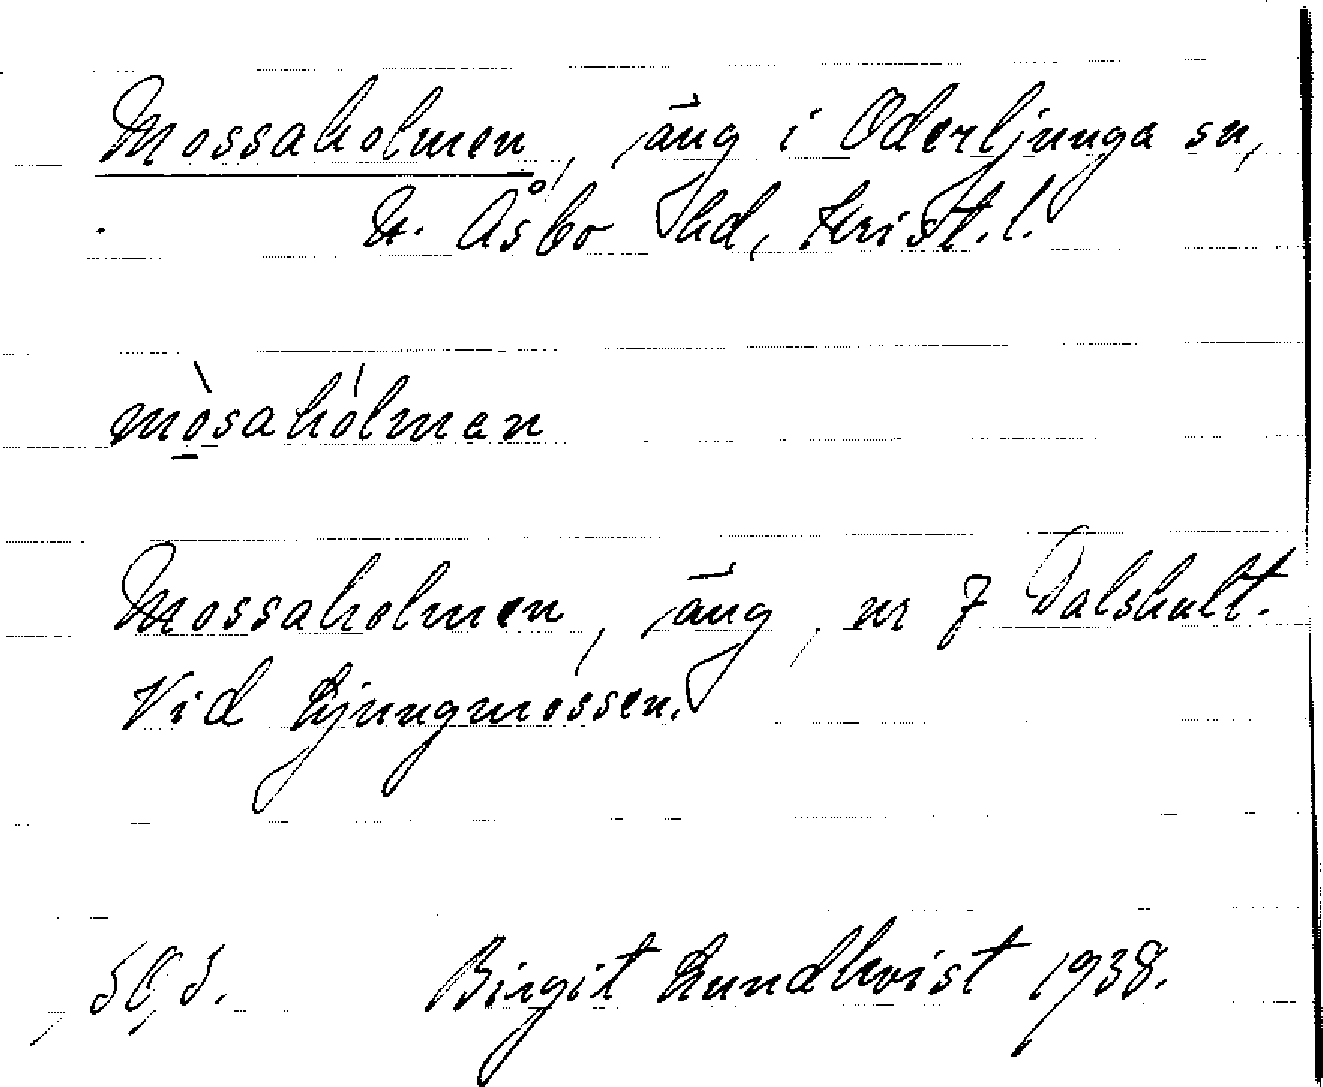 Mossaholmen, äng i Oderljunga sn,
N. Åsbo hd, Krist. l.
mòsahólman
Mossaholmen, äng, nr 7 Dalshult.
Vid Ljungmossen.
Birgit Lundkvist 1938.